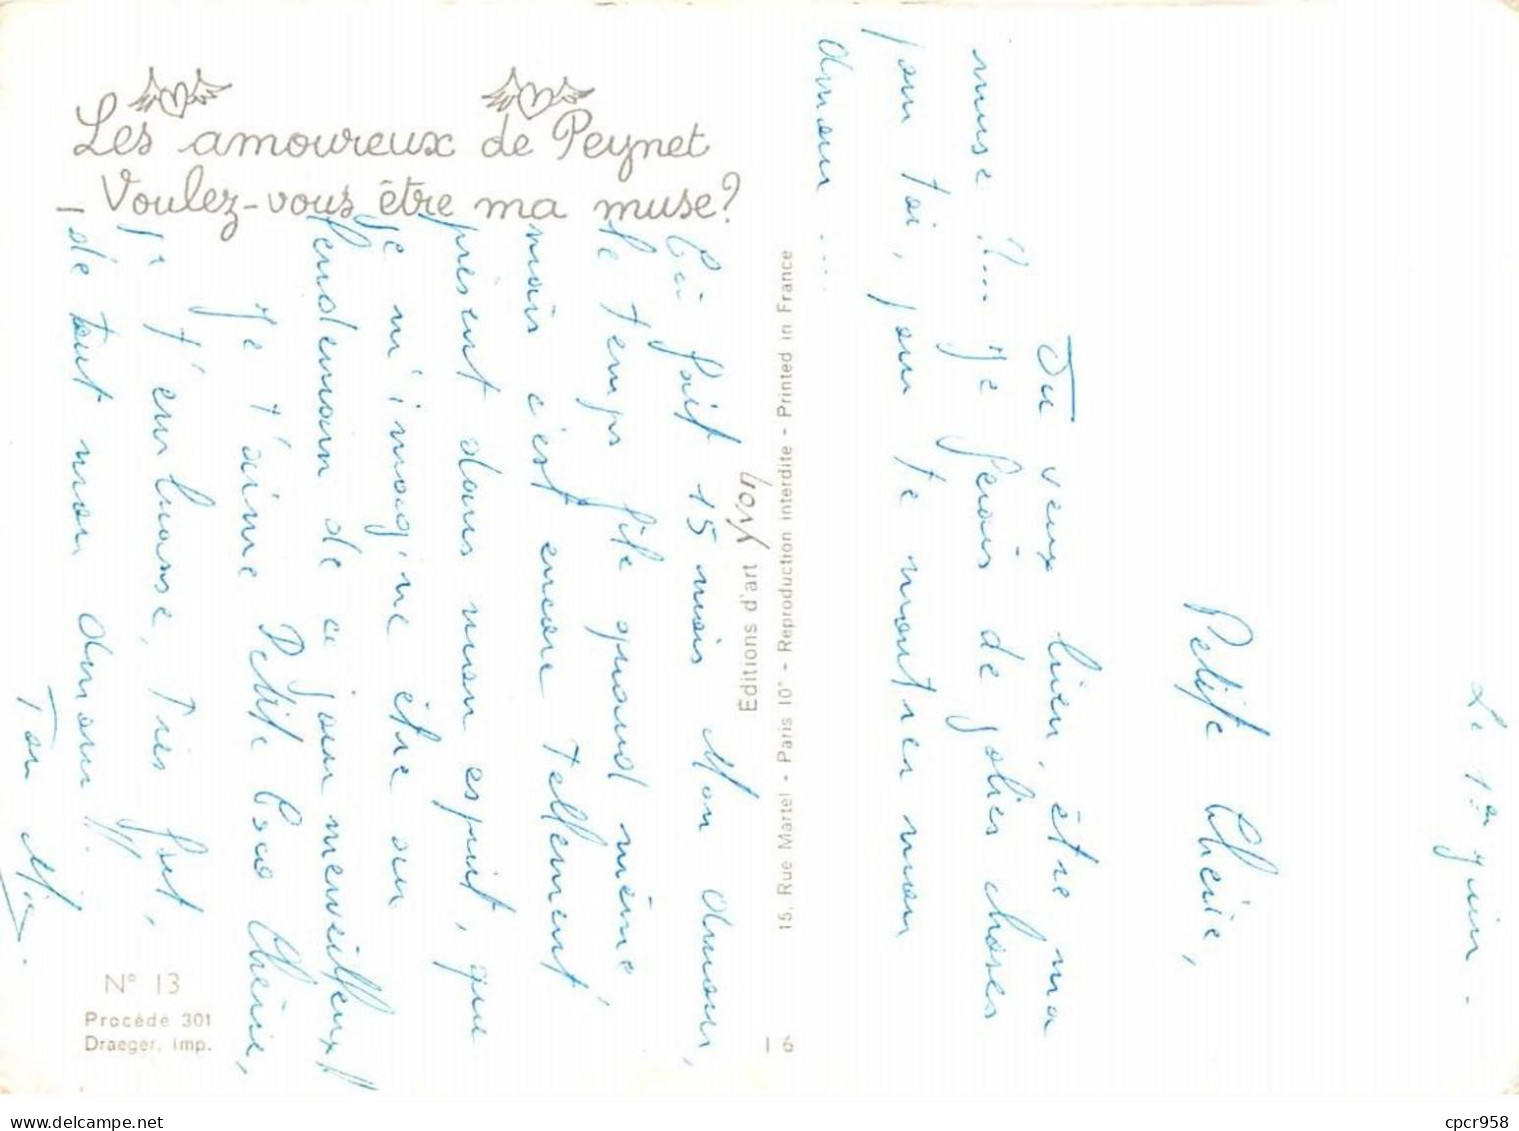 Les amoureux de Peynet
- Voulez-vous être ma muse?
Le 1er juin.
Petite Chérie,
Tu veux bien être ma
muse ?... Je ferais de jolies choses
pour toi, pour te montrer mon
amour ....
Ça fait 15 mois Mon amour,
le temps file quand même,
mais c'est encore tellement
présent dans mon esprit, que
je m'imagine être au
lendemain de ce jour merveilleux !
Je t'aime Petite Chérie,
Je t'embrasse, très fort,
de tout mon amour !!
Ton
Éditions d'art Yvon
15, Rue Martel - Paris 10e - Reproduction interdite - Printed in France
N° 13
Procédé 301
Draeger, imp.
16
cpcr958